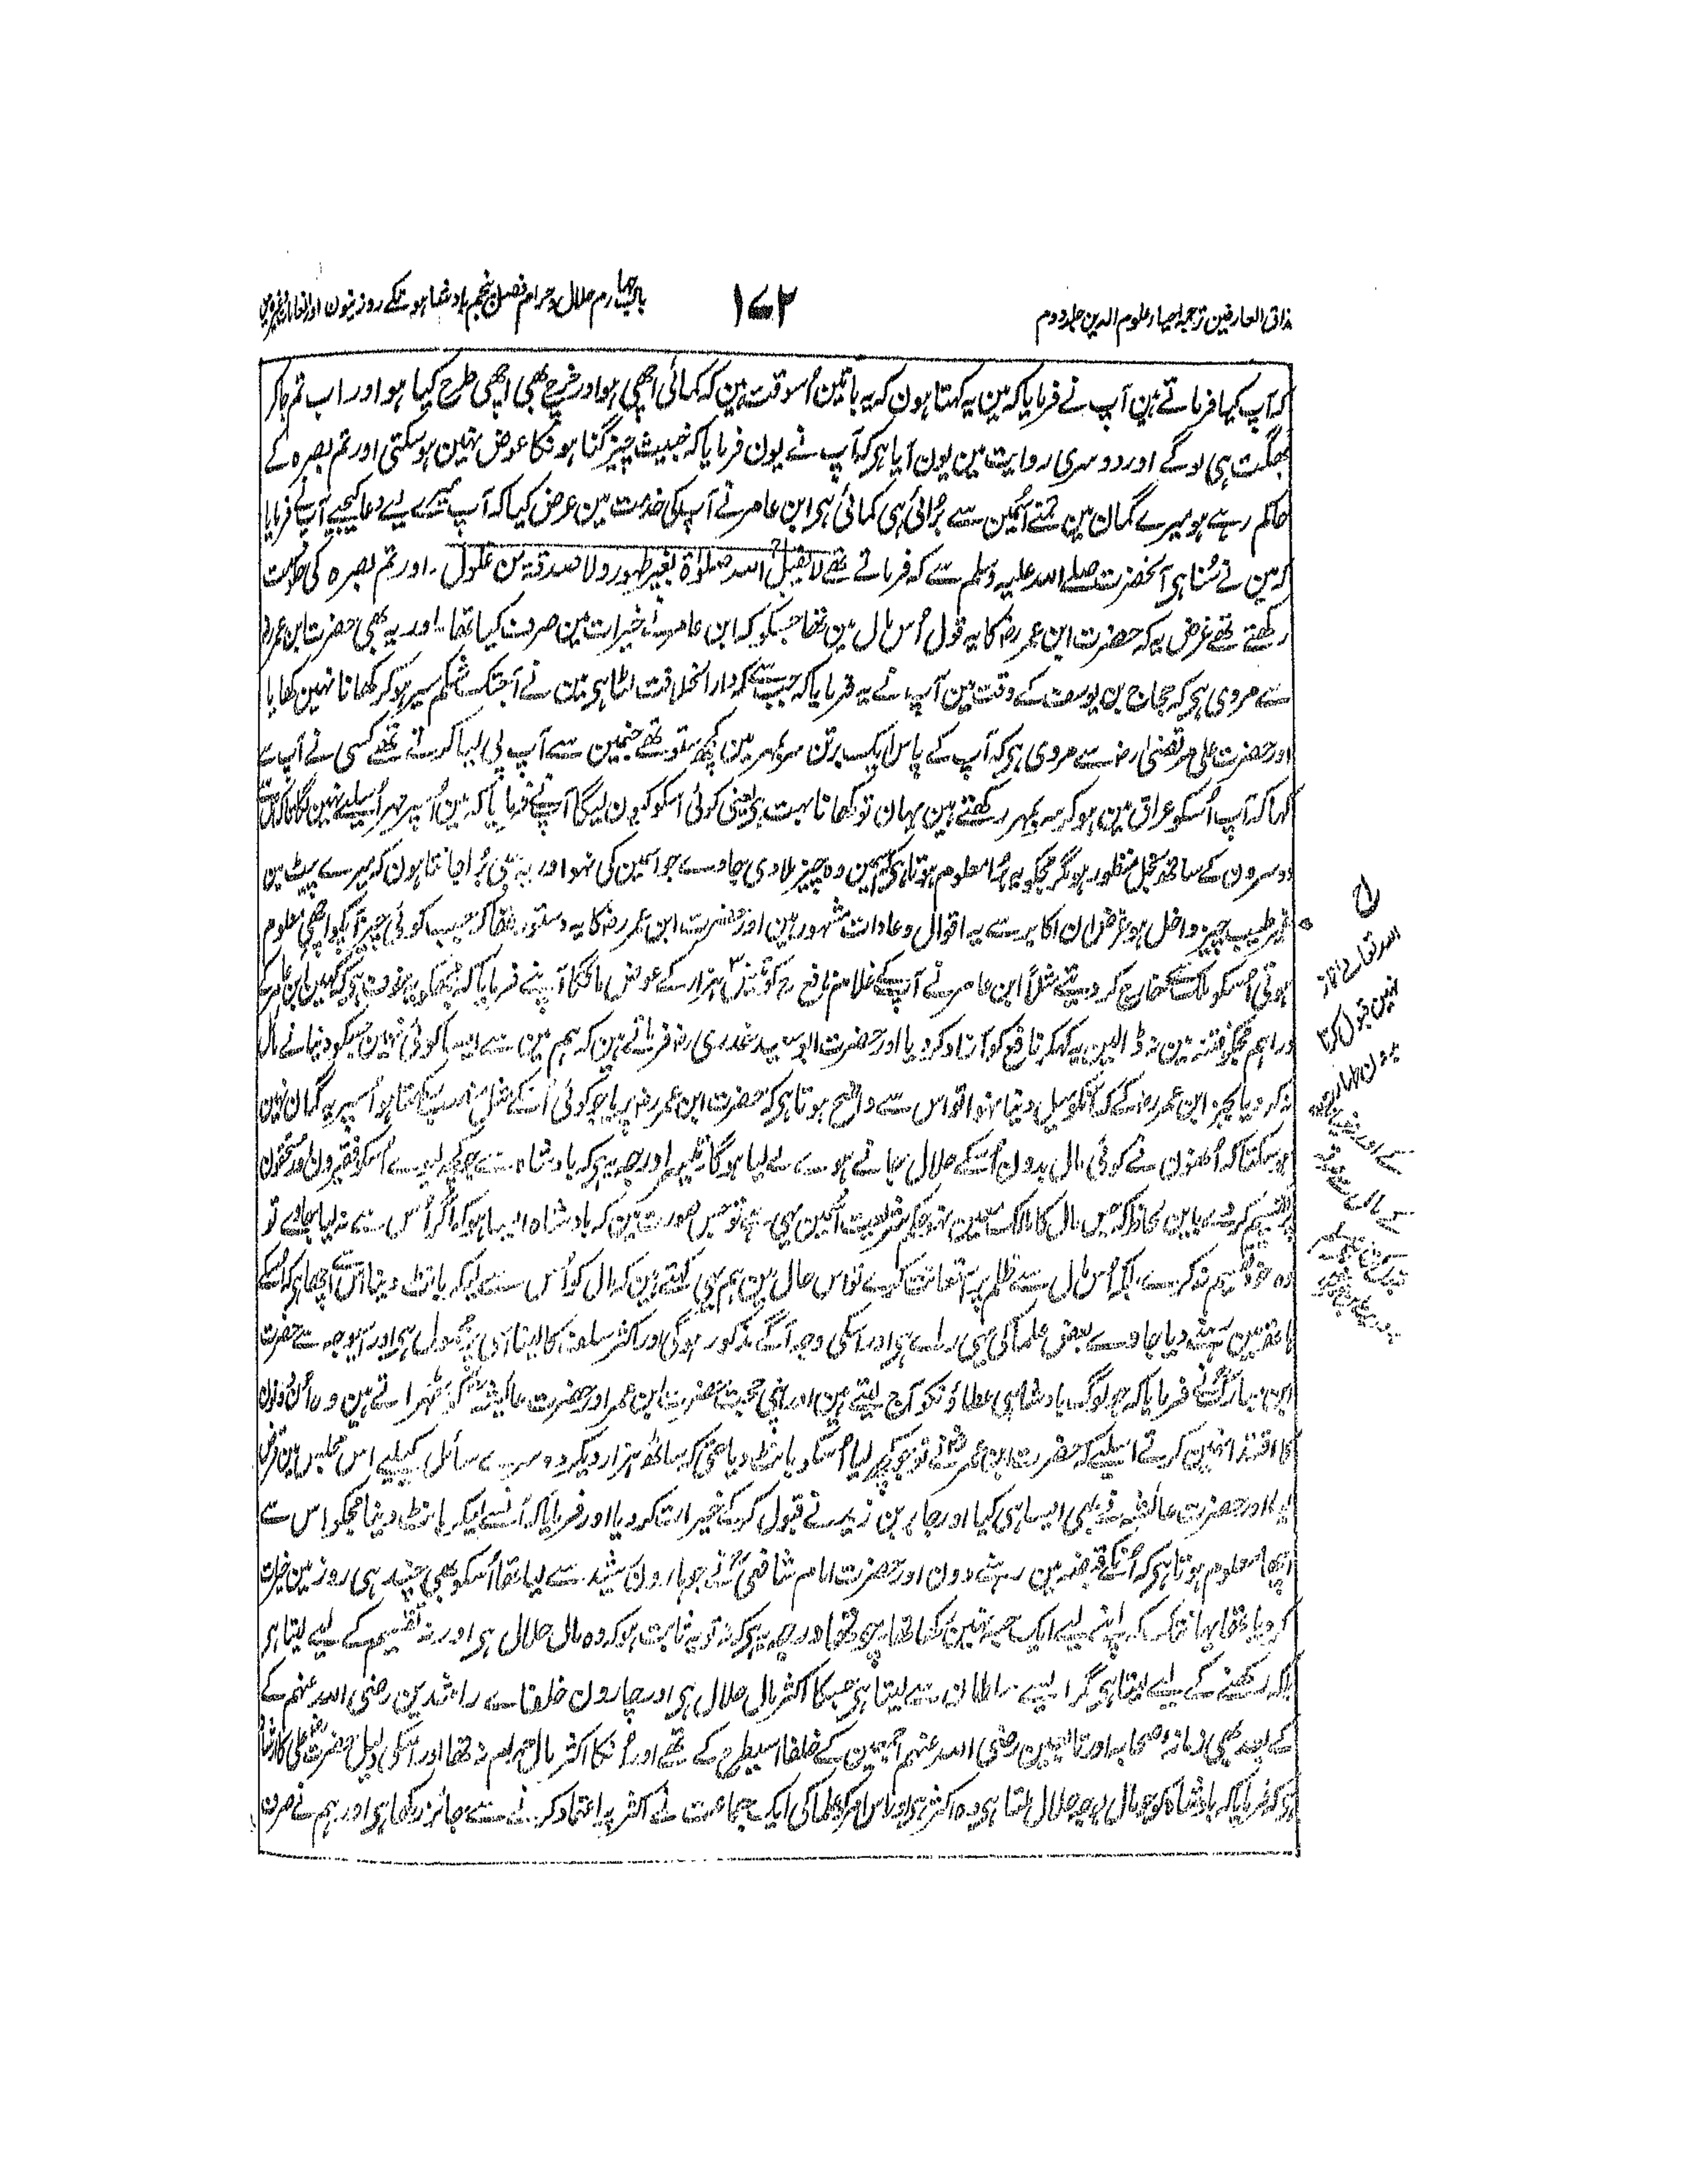 مذاق العارفین ترجمہ احیاء علوم الدین جلد دوم
۱۷۲
باب چہارم حلال و حرام فصل پنجم بادشاہونکے روزینون اور انعام وغیرہ مین
کہ آپ کیا فرماتے ہین آپ نے فرمایا کہ مین یہ کہتا ہون کہ یہ باتین اُسوقت ہین کہ کمائی اچھی ہو اور خرچ بھی اچھی طرح کیا ہو اور اب تم جاکر
بھگت ہی لوگے اور دوسری روایت مین یون آیا ہی کہ آپ نے یون فرمایا کہ خبیث چیز گناہونکا عوض نہین ہوسکتی اور تم بصرہ کے
حاکم رہے ہو میرے گمان مین تمنے اُسمین سے بُرائی ہی کمائی ہی ابن عامر نے آپ کی خدمت مین عرض کیا کہ آپ میرے لیے دعا کیجیے آپ نے فرمایا
کہ مین نے سُنا ہی آنحضرت صلے اللہ علیہ وسلم سے کہ فرماتے تھے لا یقبل اللہ صلوٰۃ بغیر طہور ولا صدقۃ من غلول۔ اور تم بصرہ کی حکومت
رکھتے تھے غرض یہ کہ حضرت ابن عمر رضہ کا یہ قول اُس مال مین تھا جسکو کہ ابن عامر نے خیرات مین صرف کیا تھا۔ اور یہ بھی حضرت ابن عمر رضہ
سے مروی ہی کہ حجاج بن یوسف کے وقت مین آپ نے یہ فرمایا کہ جب سے کہ دار الخلافت لٹا ہی مین نے آجتک شکم سیر ہوکر کھانا نہین کھایا
اور حضرت علی مرتضیٰ رضہ سے مروی ہی کہ آپ کے پاس ایک برتن سر بمہر مین کچھ ستو تھے جنمین سے آپ پی لیا کرتے تھے کسی نے آپ سے
کہا کہ آپ اُسکو عراق مین ہوکر سر بمہر رکھتے ہین یہان تو کھانا بہت ہی یعنی کوئی اسکو کیون لیگا آپ نے فرمایا کہ مین اُسپر مہر اسلیے نہین لگاتا کہ
دوسرون کے ساتھ بخل منظور ہو مگر مجکو یہ بُرا معلوم ہوتا ہی کہ اسمین وہ چیز ملا دی جاوے جو اسمین کی نہو اور یہ بھی بُرا جانتا ہون کہ میرے پیٹ مین
غیر طیب چیز داخل ہو غرض ان اکابر سے یہ اقوال و عادات مشہور ہین اور حضرت ابن عمر رضہ کا یہ دستور تھا کہ جب کوئی چیز آپکو اچھی معلوم
ہوتی اُسکو ملک سے خارج کر دیتے مثلاً ابن عامر نے آپ کے غلام نافع رح کو تیس ہزار کے عوض مانگا آپ نے فرمایا کہ مجھکو یہ خوف ہی کہ کہین ابن عامر کے
دراہم مجکو فتنہ مین نہ ڈالین یہ کہکر نافع کو آزاد کر دیا اور حضرت ابو سعید خدری رضہ فرماتے ہین کہ ہم مین سے ایسا کوئی نہین جسکو دنیا نے مائل
نہ کر دیا بجز ابن عمر رضہ کے کہ انکو میل دنیا نہوا تو اس سے واضح ہوتا ہی کہ حضرت ابن عمر رضہ پر یا جو کوئی اُنکے مثل منصب رکھتا ہو اُسپر یہ گمان نہین
ہوسکتا کہ اُنھون نے کوئی مال بدون اُسکے حلال جانے ہوے لے لیا ہوگا تیسرا درجہ یہ ہی کہ بادشاہ سے جو کچھ لیوے اُسکو فقیرون اور مستحقون
پر تقسیم کردے باین لحاظ کہ جس مال کا مالک معین نہو حکم شریعت اُسمین یہی ہے تو جس صورت مین کہ بادشاہ ایسا ہو کہ اگر اُس سے نہ لیا جاوے تو
وہ خود تقسیم نہ کرے بلکہ اُس مال سے ظلم پر استعانت کرے تو اس حال مین ہم یہی کہتے ہین کہ مال کو اُس سے لیکر بانٹ دینا اس سے اچھا ہی کہ اُسکے
ہاتھ مین رہنے دیا جاوے بعض علما کی یہی راے ہی اور اسکی وجہ آگے مذکور ہوگی اور اکثر سلف کا لینا اسی پر محمول ہی اور اسیوجہ سے حضرت
ابن مبارک رح نے فرمایا کہ جو لوگ بادشاہی عطاؤنکو آج لیتے ہین اور اپنی حجت حضرت ابن عمر اور حضرت عائشہ رضہ کو ٹھہراتے ہین وہ اُن دونون
کا اقتدا نہین کرتے اسلیے کہ حضرت ابن عمر رضہ نے تو جو کچھ لیا اُسکو بانٹ دیا حتی کہ ساٹھ ہزار دیکر دوسرے سائل کیلیے اس مجلس مین قرض
لیا اور حضرت عائشہ نے بھی ایسا ہی کیا اور جابر بن زید نے قبول کرکے خیرات کر دیا اور فرمایا کہ اُنسے لیکر بانٹ دینا مجکو اس سے
اچھا معلوم ہوتا ہی کہ اُنکے قبضہ مین رہنے دون اور حضرت امام شافعی رح نے جو ہارون رشید سے لیا تھا اُسکو بھی چند ہی روز مین خیرات
کر دیا تھا یہانتک کہ اپنے لیے ایک حبہ نہین رکھا تھا چوتھا درجہ یہ ہی کہ نہ تو یہ ثابت ہو کہ وہ مال حلال ہی اور نہ تقسیم کے لیے لیتا ہو
بلکہ رکھنے کے لیے لیتا ہی مگر ایسے سلطان سے لیتا ہی جسکا اکثر مال حلال ہی اور چارون خلفاے راشدین رضی اللہ عنہم کے
کے بعد بھی زمانہ صحابہ اور تابعین رضی اللہ عنہم اجمعین کے خلفا اسیطرح کے تھے اور اُنکا اکثر مال حرام نہ تھا اور اسکی دلیل حضرت علی کا ارشاد
ہی کہ فرمایا کہ بادشاہ کو جو مال بوجہ حلال ملتا ہی وہ اکثر ہی اور اس امر کو علما کی ایک جماعت نے اکثر پر اعتماد کرنے سے جائز رکھا ہی اور ہم نے صرف
اللہ تعالے نماز
نہین قبول کرتا
بدون طہارت
کے اور نہ صدقہ